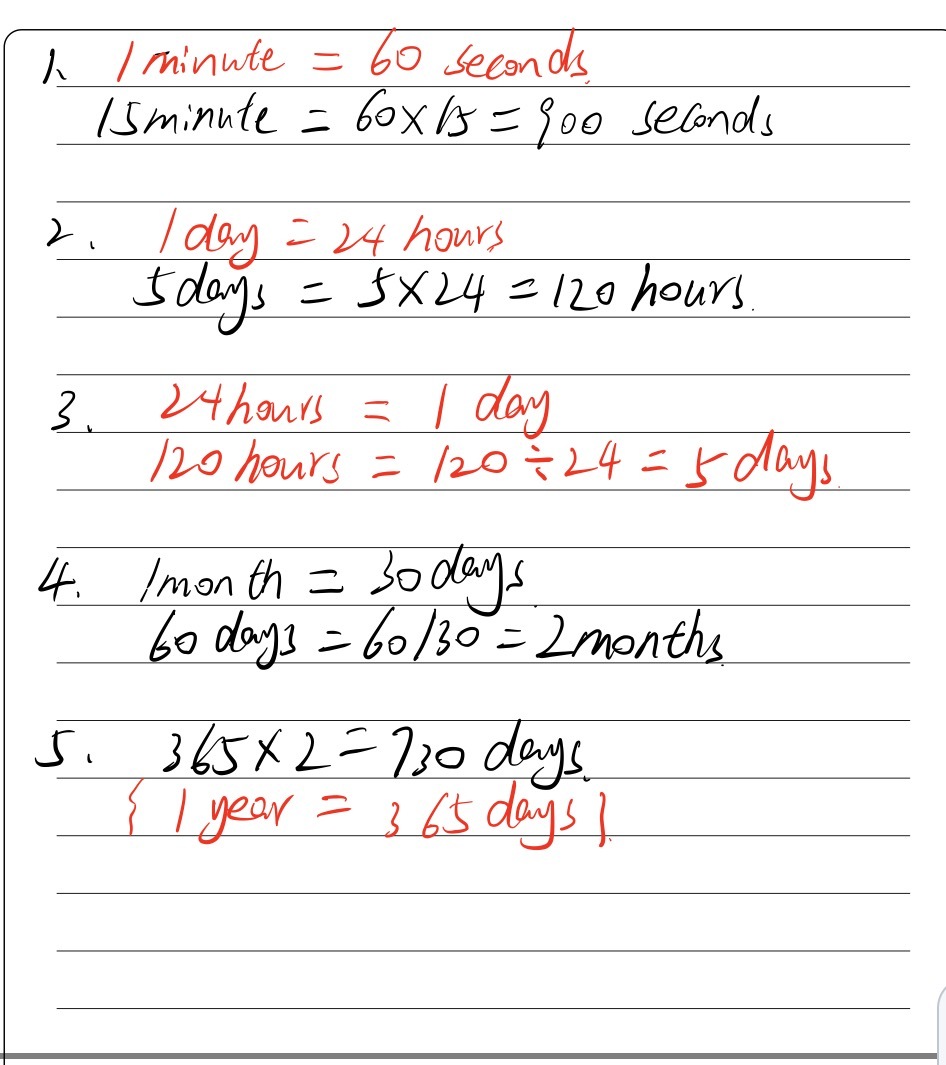 1. 1 minute = 60 seconds.
15minute = 60×15 = 900 seconds
2. 1 day = 24 hours
5 days = 5×24 = 120 hours.
3. 24 hours = 1 day
120 hours = 120 ÷ 24 = 5 days.
4. 1 month = 30 days.
60 days = 60/30 = 2 months.
5. 365 × 2 = 730 days.
{ 1 year = 365 days }.